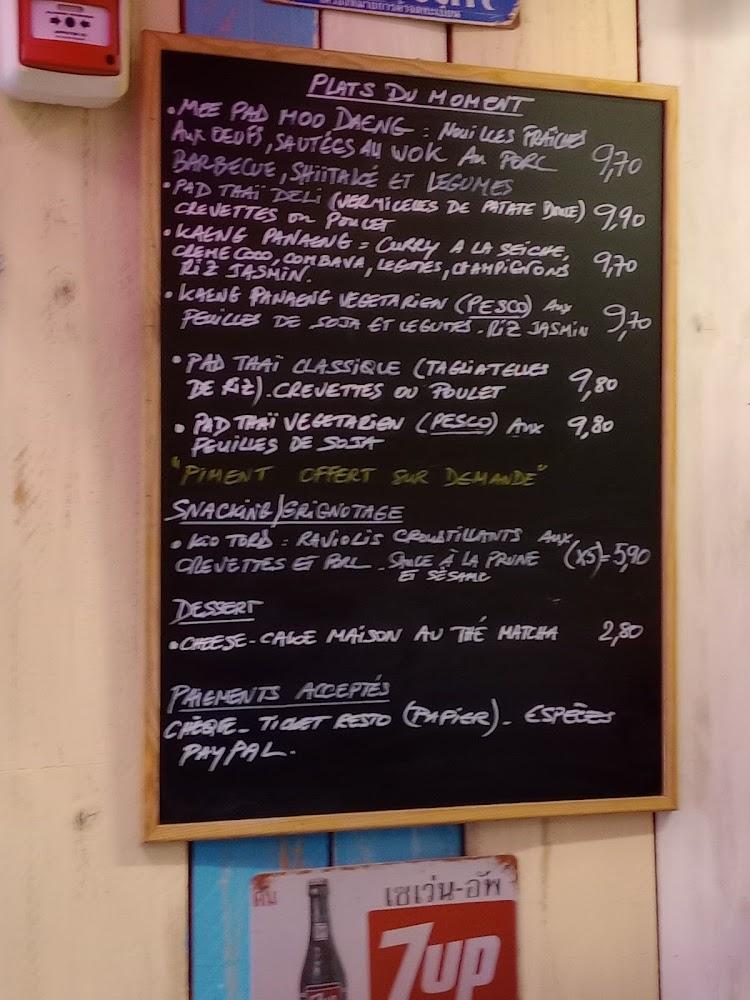 PLATS DU MOMENT
• MEE PAD MOO DAENG : NOUILLES FRAÎCHES
AUX OEUFS, SAUTÉES AU WOK AU PORC
BARBECUE, SHIITAKÉ ET LEGUMES 9,70
• PAD THAÏ DELI (VERMICELLES DE PATATE DOUCE)
CREVETTES OU POULET 9,90
• KAENG PANAENG = CURRY A LA SEICHE,
CREME COCO, COMBAVA, LEGUMES, CHAMPIGNONS
RIZ JASMIN. 9,70
• KAENG PANAENG VEGETARIEN (PESCO) AUX
FEUILLES DE SOJA ET LEGUMES - RIZ JASMIN 9,70
• PAD THAÏ CLASSIQUE (TAGLIATELLES
DE RIZ). CREVETTES OU POULET 9,80
• PAD THAÏ VEGETARIEN (PESCO) AUX 9,80
FEUILLES DE SOJA
"PIMENT OFFERT SUR DEMANDE"
SNACKING/GRIGNOTAGE
• KIO TORD : RAVIOLIS CROUSTILLANTS AUX
CREVETTES ET PORC - SAUCE À LA PRUNE (X5)=5,90
ET SÉSAME
DESSERT
• CHEESE-CAKE MAISON AU THÉ MATCHA 2,80
PAIEMENTS ACCEPTÉS
CHÈQUE - TICKET RESTO (PAPIER) - ESPÈCES
PAYPAL.
ดื่ม เซเว่น-อัพ
7up